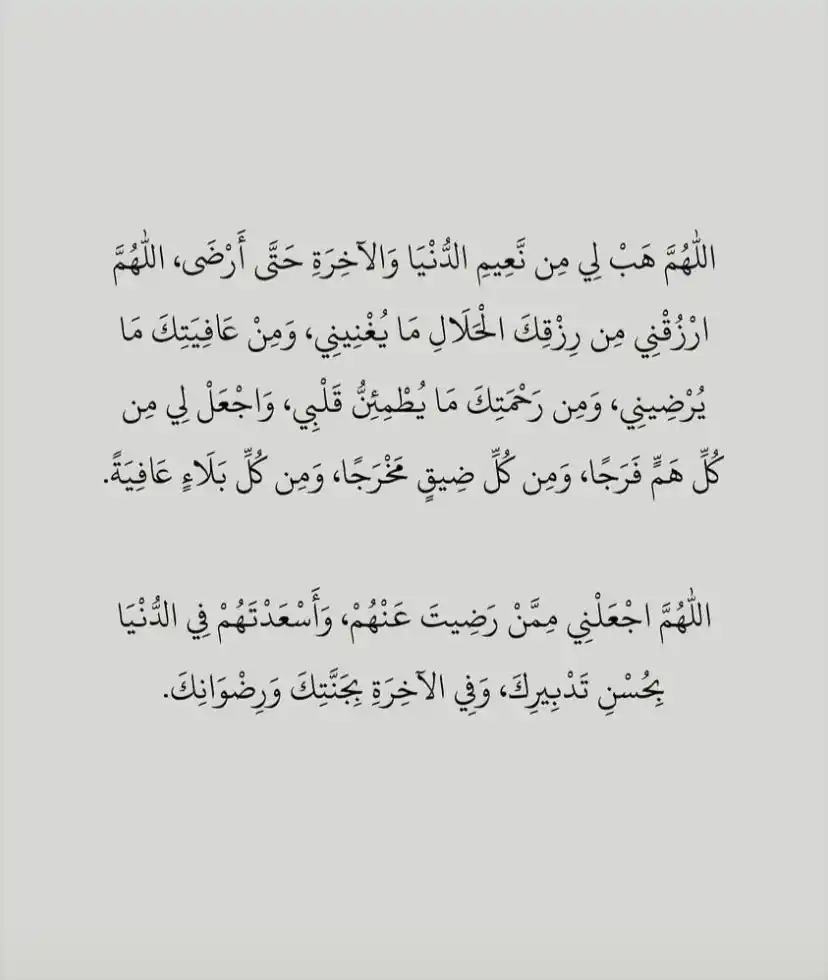 اللَّهُمَّ هَبْ لِي مِن نَّعِيمِ الدُّنْيَا وَالآخِرَةِ حَتَّى أَرْضَى، اللَّهُمَّ
ارْزُقْنِي مِن رِزْقِكَ الْحَلَالِ مَا يُغْنِينِي، وَمِنْ عَافِيَتِكَ مَا
يُرْضِينِي، وَمِن رَحْمَتِكَ مَا يُطْمِئِنُّ قَلْبِي، وَاجْعَلْ لِي مِن
كُلِّ هَمٍّ فَرَجًا، وَمِن كُلِّ ضِيقٍ مَخْرَجًا، وَمِن كُلِّ بَلَاءٍ عَافِيَةً.
اللَّهُمَّ اجْعَلْنِي مِمَّنْ رَضِيتَ عَنْهُمْ، وَأَسْعَدْتَهُمْ فِي الدُّنْيَا
بِحُسْنِ تَدْبِيرِكَ، وَفِي الآخِرَةِ بِجَنَّتِكَ وَرِضْوَانِكَ.